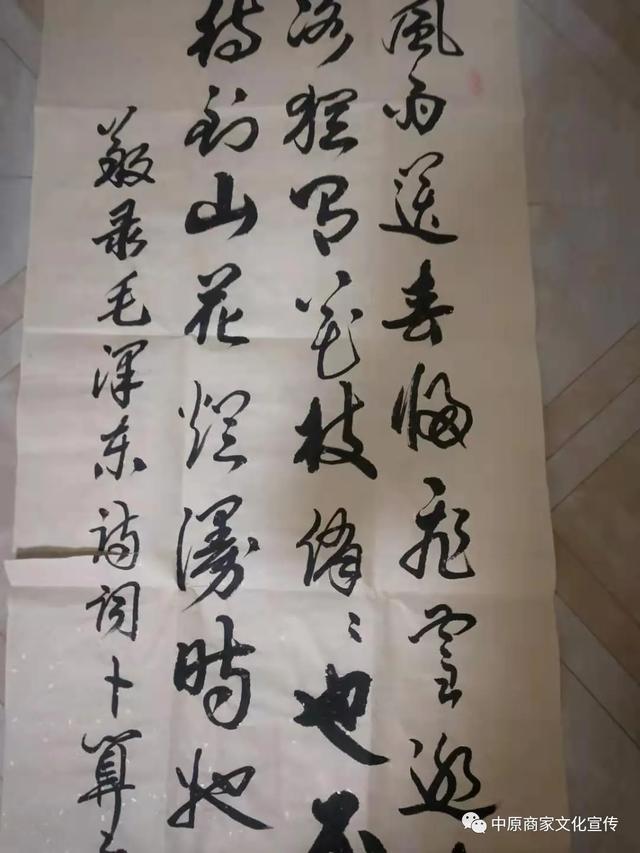 風雨送春歸飛雪迎
冰猶有花枝俏〻也不
待到山花烂漫時她
敬录毛泽东诗词卜算
中原商家文化宣传